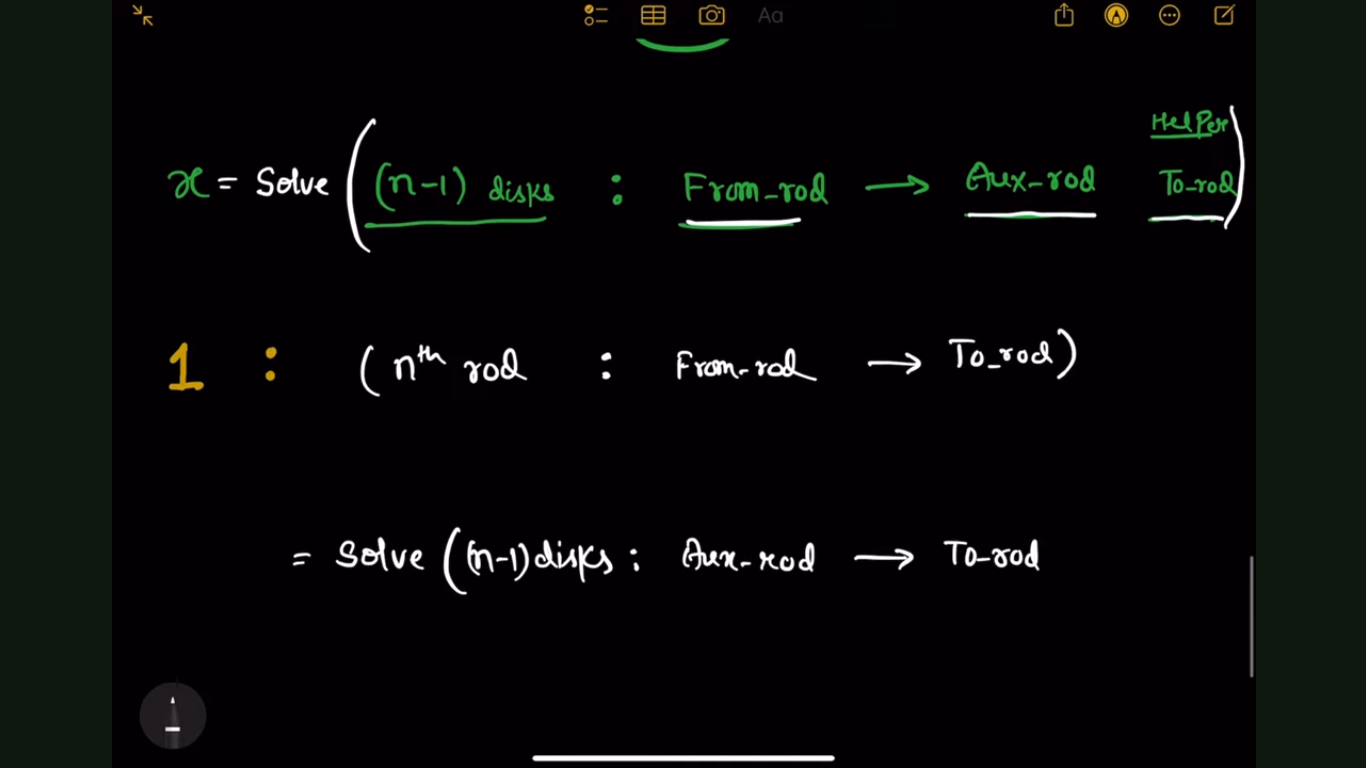 Aa
Helper
x = Solve ( (n-1) disks : From-rod → Aux-rod To-rod )
1 : ( nth rod : From-rod → To_rod )
= Solve ( (n-1) disks : Aux-rod → To-rod